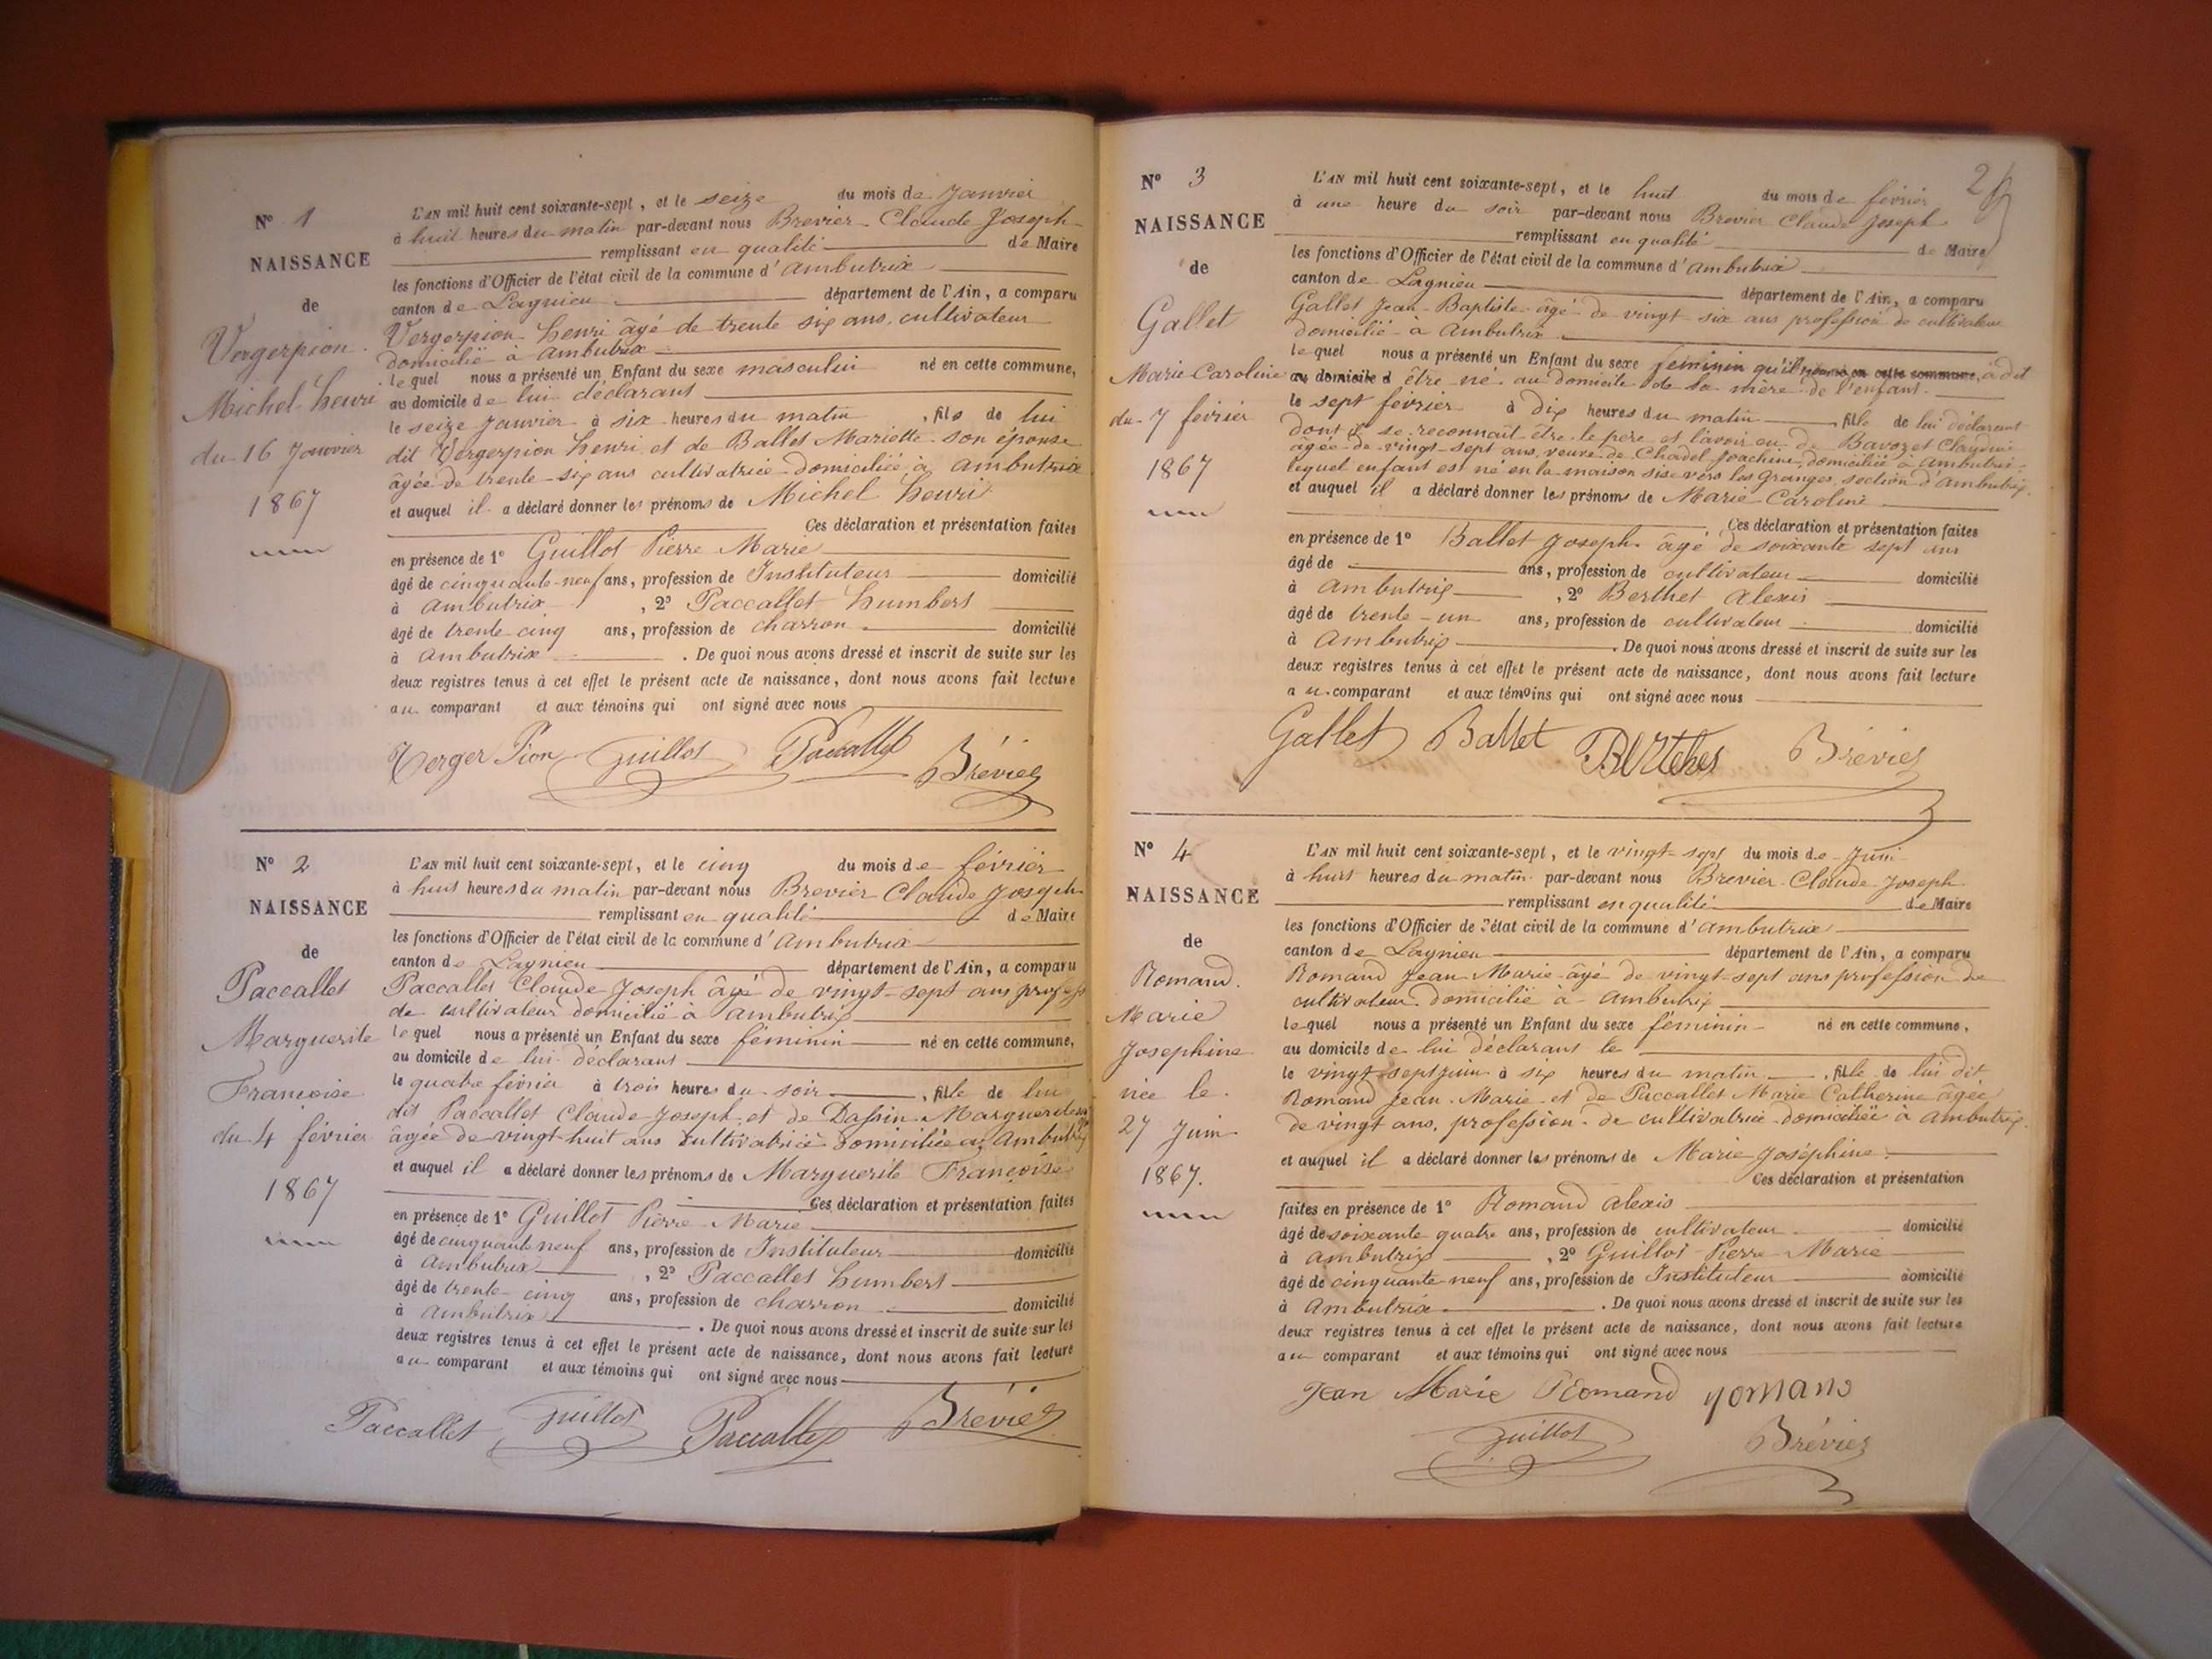 N° 1
NAISSANCE
de
Vergerpion
Michel Henri
du 16 Janvier
1867
L'AN mil huit cent soixante-sept, et le seize du mois de Janvier
à huit heures du matin par-devant nous Brevier Claude Joseph
remplissant en qualité de Maire
les fonctions d'Officier de l'état civil de la commune d'Ambutrix
canton de Lagnieu département de l'Ain, a comparu
Vergerpion Henri âgé de trente six ans, cultivateur
domicilié à Ambutrix
lequel nous a présenté un Enfant du sexe masculin né en cette commune,
au domicile de lui déclarant
le seize Janvier à six heures du matin, fils de lui
dit Vergerpion Henri et de Ballet Mariette son épouse
âgée de trente-six ans cultivatrice domiciliée à Ambutrix
et auquel il a déclaré donner les prénoms de Michel Henri
Ces déclaration et présentation faites
en présence de 1° Guillot Pierre Marie
âgé de cinquante-neuf ans, profession de Instituteur domicilié
à Ambutrix, 2° Paccallet Humbert
âgé de trente cinq ans, profession de charron domicilié
à Ambutrix. De quoi nous avons dressé et inscrit de suite sur les
deux registres tenus à cet effet le présent acte de naissance, dont nous avons fait lecture
au comparant et aux témoins qui ont signé avec nous
Verger Pion Guillot Paccallet Brévier
N° 2
NAISSANCE
de
Paccallet
Marguerite
Françoise
du 4 février
1867
L'AN mil huit cent soixante-sept, et le cinq du mois de février
à huit heures du matin par-devant nous Brevier Claude Joseph
remplissant en qualité de Maire
les fonctions d'Officier de l'état civil de la commune d'Ambutrix
canton de Lagnieu département de l'Ain, a comparu
Paccallet Claude Joseph âgé de vingt-sept ans profess
de cultivateur domicilié à Ambutrix
lequel nous a présenté un Enfant du sexe féminin né en cette commune,
au domicile de lui déclarant
le quatre février à trois heures du soir, fille de lui
dit Paccallet Claude Joseph et de Dassin Marguerite
âgée de vingt-huit ans cultivatrice domiciliée à Ambutrix
et auquel il a déclaré donner les prénoms de Marguerite Françoise
Ces déclaration et présentation faites
en présence de 1° Guillot Pierre Marie
âgé de cinquante neuf ans, profession de Instituteur domicilié
à Ambutrix, 2° Paccallet Humbert
âgé de trente-cinq ans, profession de charron domicilié
à Ambutrix. De quoi nous avons dressé et inscrit de suite sur les
deux registres tenus à cet effet le présent acte de naissance, dont nous avons fait lecture
au comparant et aux témoins qui ont signé avec nous
Paccallet Guillot Paccallet Brévier
N° 3
NAISSANCE
de
Gallet
Marie Caroline
du 7 février
1867
L'AN mil huit cent soixante-sept, et le huit du mois de février
à une heure du soir par-devant nous Brevier Claude Joseph
remplissant en qualité de Maire
les fonctions d'Officier de l'état civil de la commune d'Ambutrix
canton de Lagnieu département de l'Ain, a comparu
Gallet Jean-Baptiste âgé de vingt-six ans profession de cultivateur
domicilié à Ambutrix
lequel nous a présenté un Enfant du sexe féminin qu'il né en cette commune, a dit
au domicile d être né au domicile de la mère de l'enfant
le sept février à dix heures du matin, fille de lui déclarant
dont il se reconnait être le père et l'avoir eu de Bavozet Claudine
âgée de vingt-sept ans, veuve de Chadel Joachim, domiciliée à Ambutrix
lequel enfant est né en la maison sise vers les Granges, section d'Ambutrix
et auquel il a déclaré donner les prénoms de Marie Caroline
Ces déclaration et présentation faites
en présence de 1° Ballet Joseph âgé de soixante sept ans
âgé de ans, profession de cultivateur domicilié
à Ambutrix, 2° Berthet Alexis
âgé de trente-un ans, profession de cultivateur domicilié
à Ambutrix. De quoi nous avons dressé et inscrit de suite sur les
deux registres tenus à cet effet le présent acte de naissance, dont nous avons fait lecture
au comparant et aux témoins qui ont signé avec nous
Gallet Ballet Brévier
N° 4
NAISSANCE
de
Romand.
Marie
Josephine
née le
27 Juin
1867.
L'AN mil huit cent soixante-sept, et le vingt-sept du mois de Juin
à huit heures du matin par-devant nous Brevier Claude Joseph
remplissant en qualité de Maire
les fonctions d'Officier de l'état civil de la commune d'Ambutrix
canton de Lagnieu département de l'Ain, a comparu
Romand Jean Marie âgé de vingt-sept ans profession de
cultivateur domicilié à Ambutrix
lequel nous a présenté un Enfant du sexe féminin né en cette commune,
au domicile de lui déclarant le
le vingt sept juin à six heures du matin, fille de lui dit
Romand Jean Marie et de Paccallet Marie Catherine âgée
de vingt ans, profession de cultivatrice domiciliée à Ambutrix.
et auquel il a déclaré donner les prénoms de Marie Joséphine
Ces déclaration et présentation
faites en présence de 1° Romand Alexis
âgé de soixante quatre ans, profession de cultivateur domicilié
à Ambutrix, 2° Guillot Pierre Marie
âgé de cinquante neuf ans, profession de Instituteur domicilié
à Ambutrix. De quoi nous avons dressé et inscrit de suite sur les
deux registres tenus à cet effet le présent acte de naissance, dont nous avons fait lecture
au comparant et aux témoins qui ont signé avec nous
Jean Marie Romand romand
Guillot Brévier